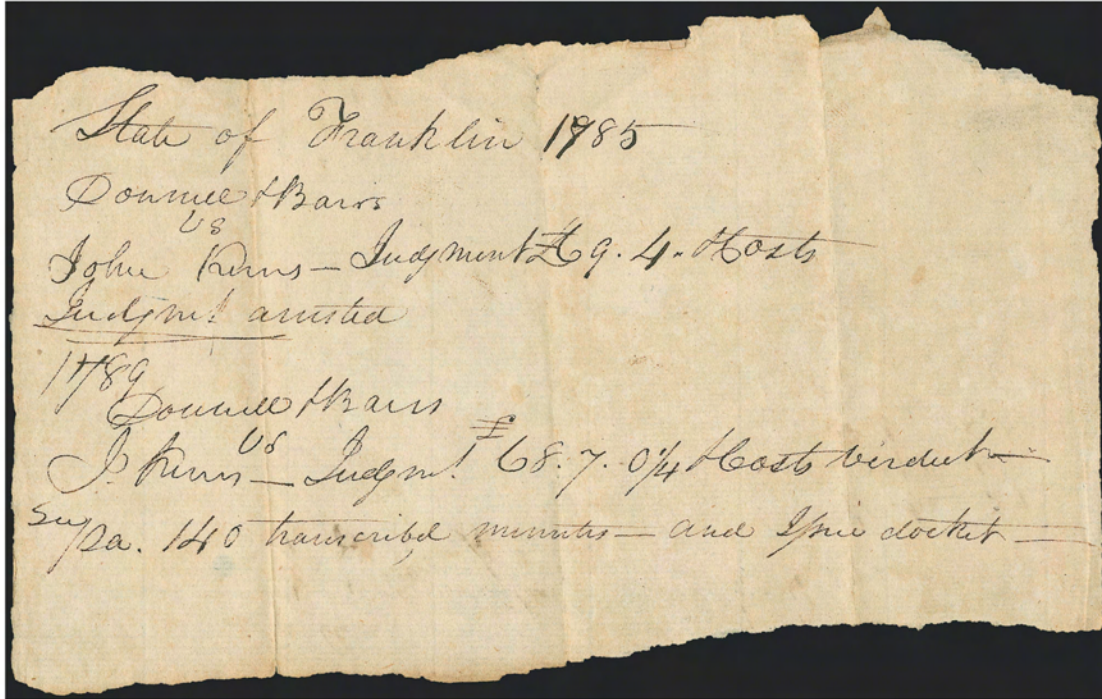 State of Franklin 1785
Donnell & Bairs
vs
John Kerns — Judgment £ 69. 4. & Costs
Judgmt arrested
1789
Donnell & Bairs
vs
J. Kerns — Judgmt £ 68. 7. 0¼ & Costs verdict —
pa. 140 transcribed minutes — and docket —